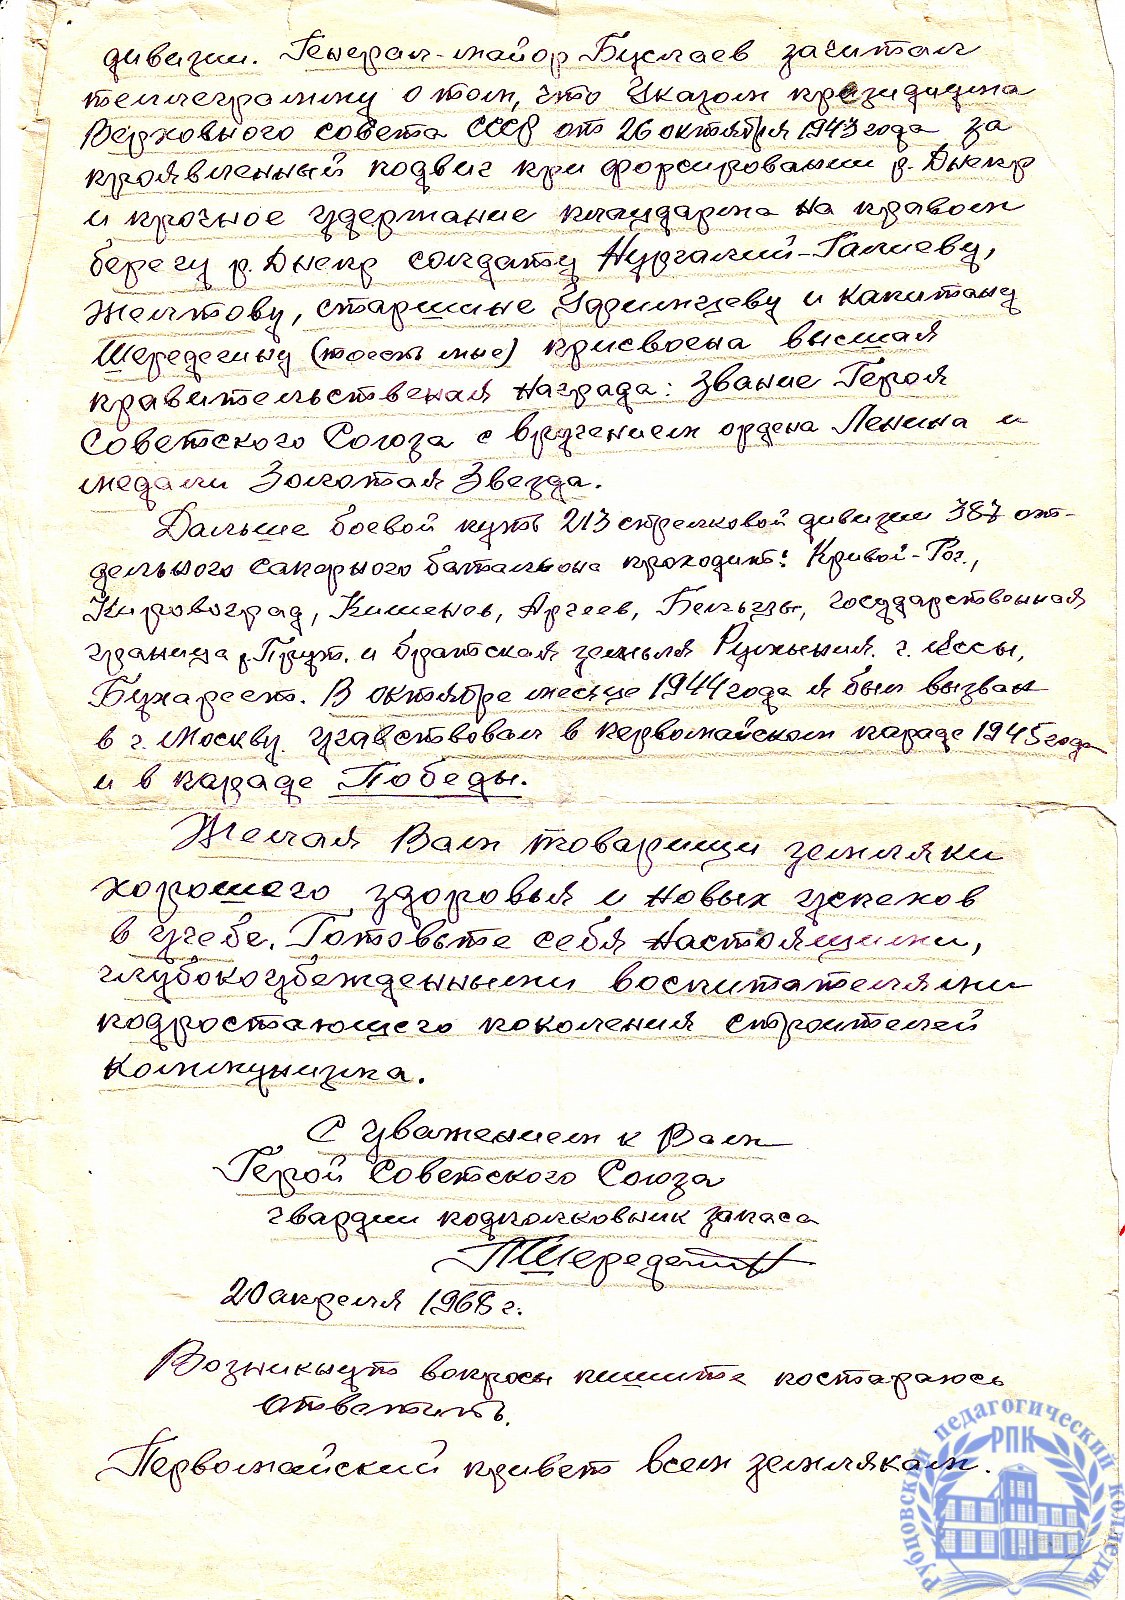 дивизии. Генерал-майор Буслаев зачитал
теллеграмму о том, что Указом президиума
Верховного совета СССР от 26 октября 1943 года за
проявленный подвиг при форсировании р. Днепр
и прочное удержание плацдарма на правом
берегу р. Днепр солдату Нургалий-Галиеву,
Желтову, старшине Удримцеву и капитану
Шередегину (тоесть мне) присвоена высшая
правительственая награда: звание Героя
Советского Союза с вручением ордена Ленина и
медали Золотая Звезда.
Дальше боевой путь 213 стрелковой дивизии 387 от-
дельного саперного батальона проходит: Кривой-Рог,
Кировоград, Кишенев, Аргеев, Бельцы, государственная
граница р. Прут. и братская земля Румыния. г. Яссы,
Бухарест. В октябре месяце 1944 года я был вызван
в г. Москву. учавствовал в первомайском параде 1945 года
и в параде Победы.
Желая Вам товарищи земляки
хорошего здоровья и новых успехов
в учебе. Готовьте себя настоящими,
глубокоубежденными воспитателями
подростающего поколения строителей
коммунизма.
С уважением к Вам
Герой Советского Союза
гвардии подполковник запаса
ПШередегин
20 апреля 1968 г.
Возникнут вопросы пишите постараюсь
ответить.
Первомайский привет всем землякам.
Рубцовский педагогический колледж
РПК